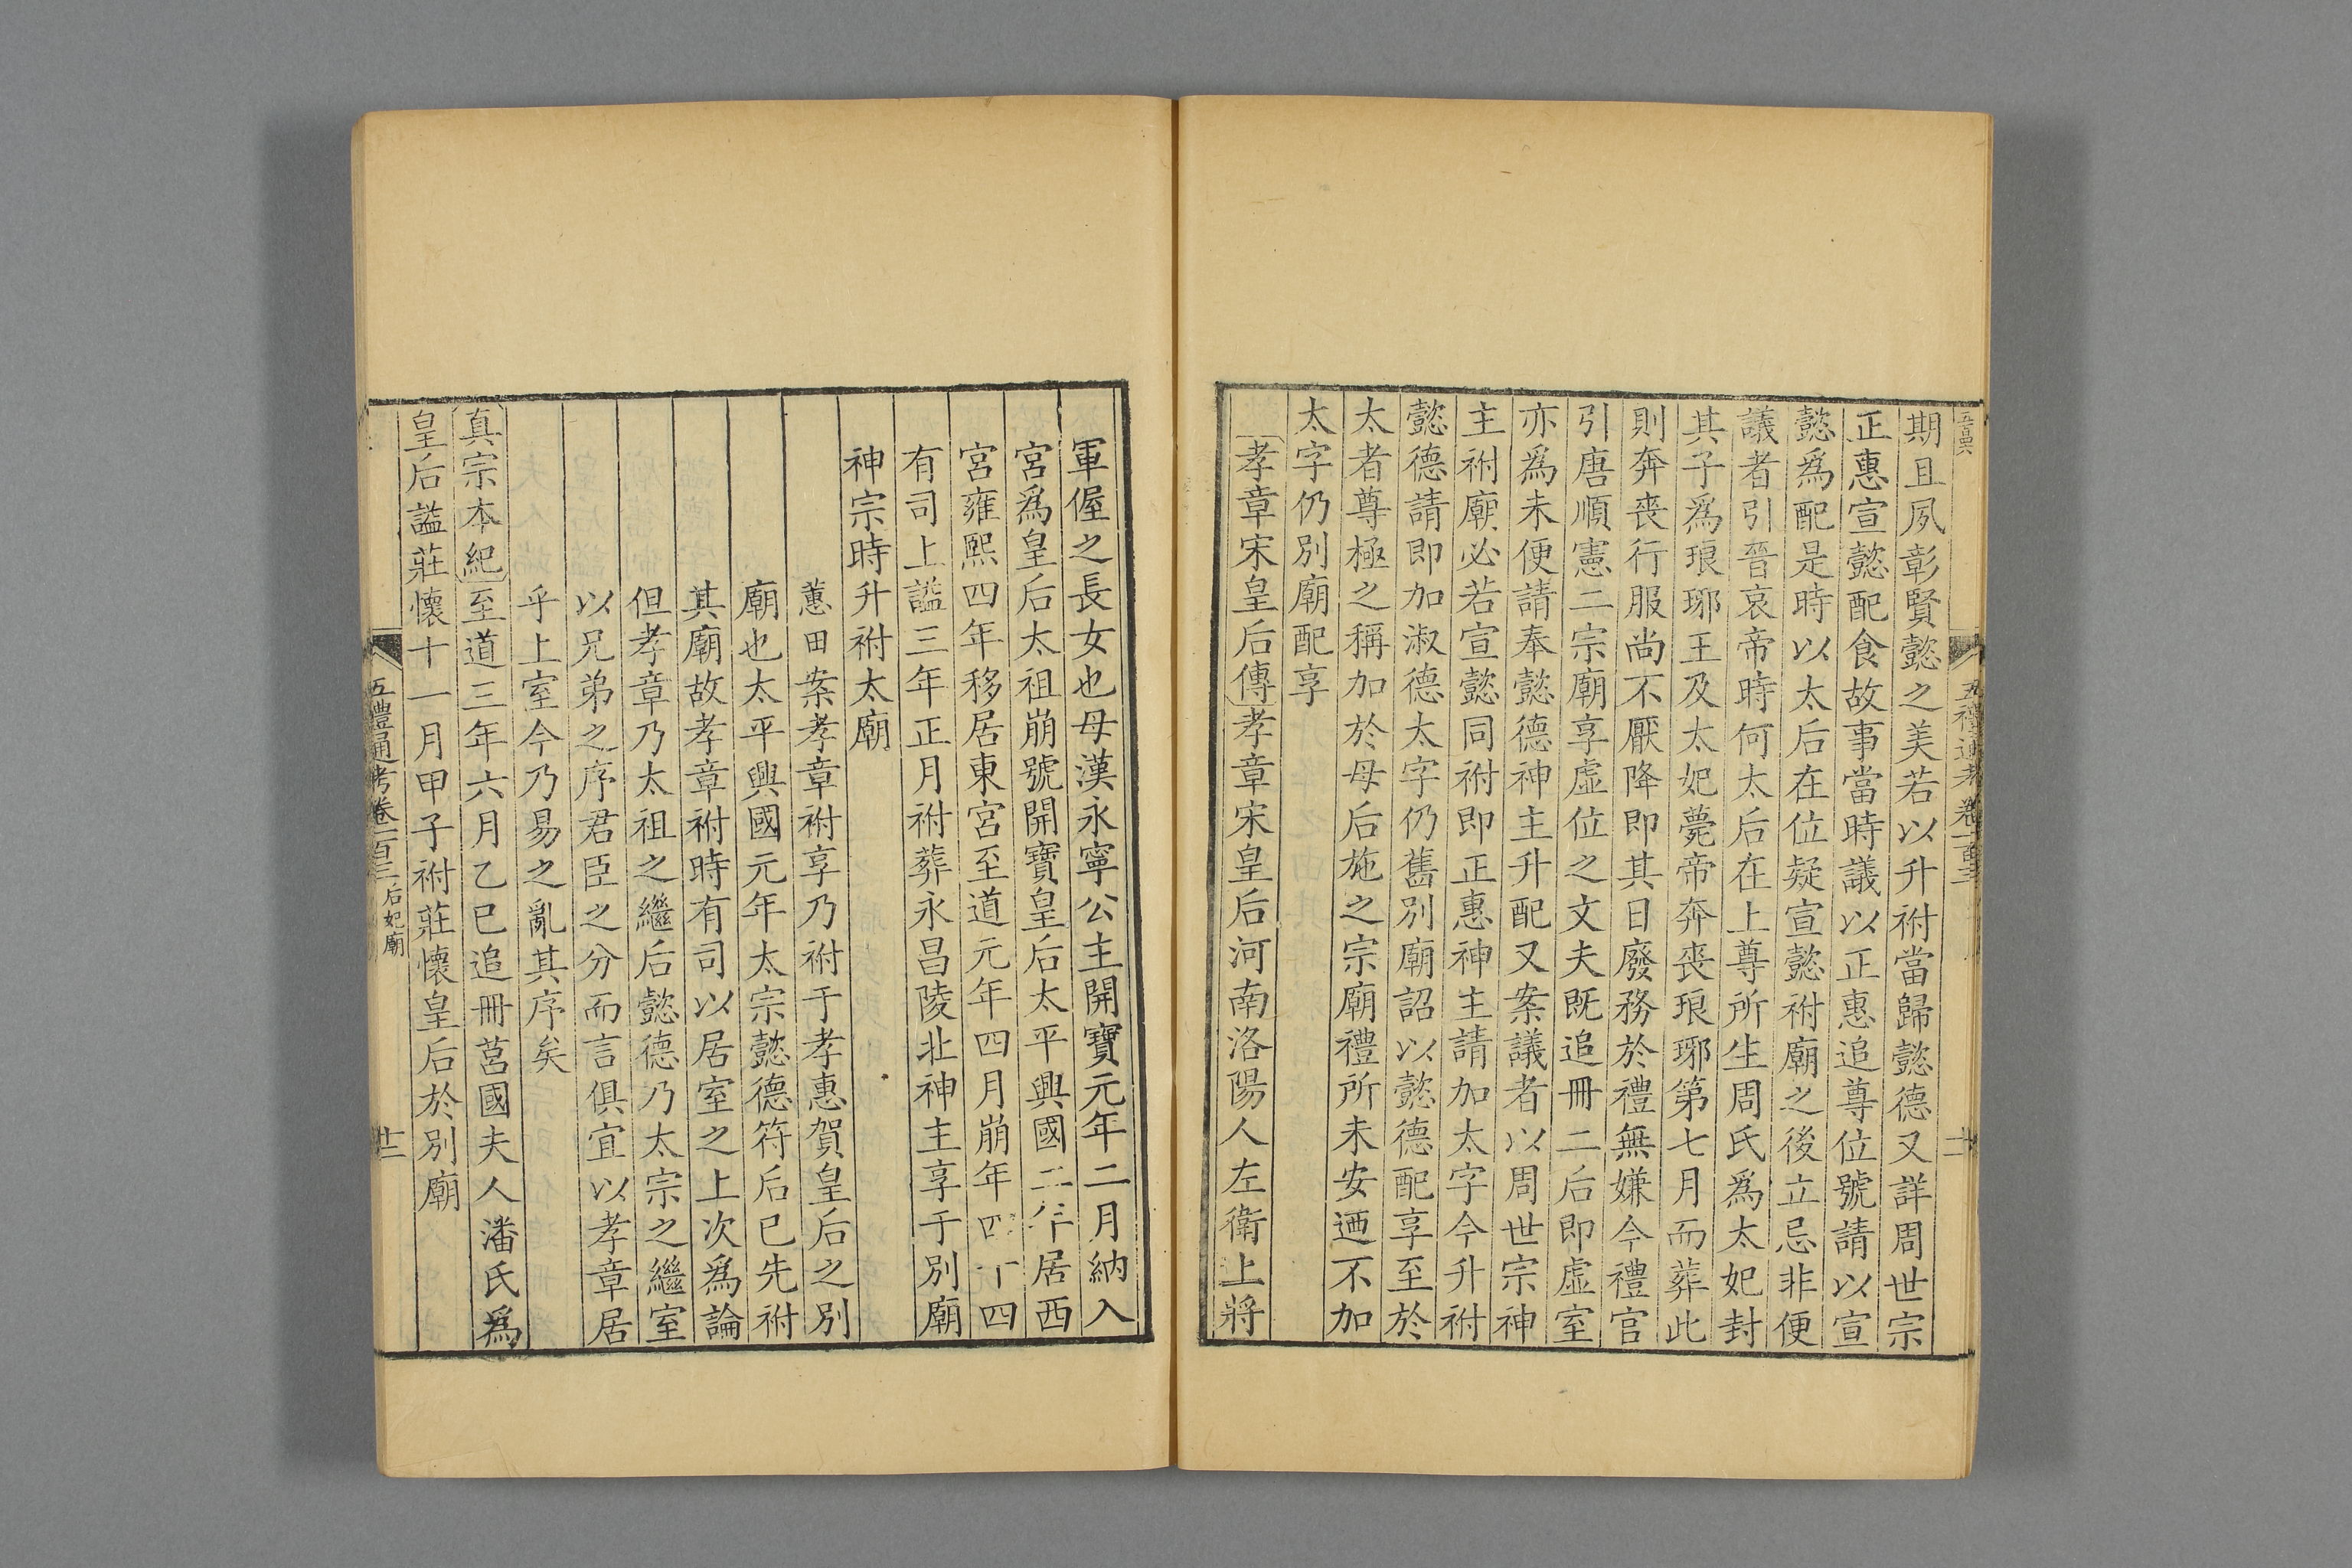 五禮通考卷一百三
期且夙彰賢懿之美若以升祔當歸懿德又詳周世宗
正惠宣懿配食故事當時議以正惠追尊位號請以宣
懿爲配是時以太后在位疑宣懿祔廟之後立忌非便
議者引晉哀帝時何太后在上尊所生周氏爲太妃封
其子爲琅琊王及太妃薨帝奔喪琅琊第七月而葬此
則奔喪行服尚不厭降即其日廢務於禮無嫌今禮官
引唐順憲二宗廟享虛位之文夫既追冊二后即虛室
亦爲未便請奉懿德神主升配又案議者以周世宗神
主祔廟必若宣懿同祔即正惠神主請加太字今升祔
懿德請即加淑德太字仍舊別廟詔以懿德配享至於
太者尊極之稱加於母后施之宗廟禮所未安迺不加
太字仍別廟配享
孝章宋皇后傳孝章宋皇后河南洛陽人左衛上將
軍偓之長女也母漢永寧公主開寶元年二月納入
宮爲皇后太祖崩號開寶皇后太平興國二年居西
宮雍熙四年移居東宮至道元年四月崩年四十四
有司上謚三年正月祔葬永昌陵北神主享于別廟
神宗時升祔太廟
蕙田案孝章祔享乃祔于孝惠賀皇后之別
廟也太平興國元年太宗懿德符后已先祔
其廟故孝章祔時有司以居室之上次爲論
但孝章乃太祖之繼后懿德乃太宗之繼室
以兄弟之序君臣之分而言俱宜以孝章居
乎上室今乃易之亂其序矣
真宗本紀至道三年六月乙巳追冊莒國夫人潘氏爲
皇后謚莊懷十一月甲子祔莊懷皇后於別廟
五禮通考卷一百三 后妃廟 廿二